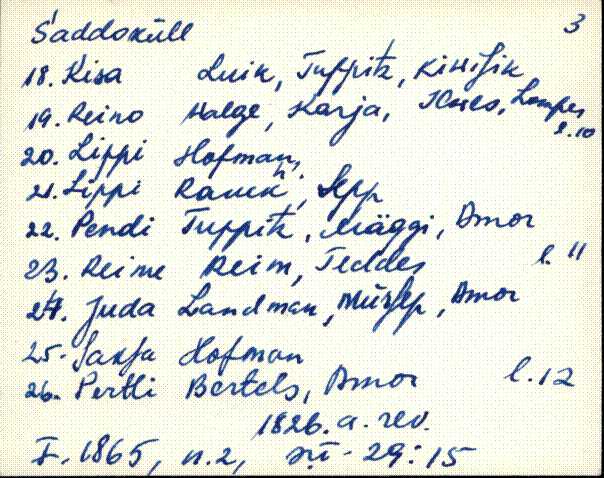 Saddoküll 3
18. Kisa Luik, Tuppitz, Kiwisik
19. Reino Walge, Karja, Ilwes, Lomper l.10
20. Lippi Hofman,
21. Lippi Rauck, Sepp
22. Pendi Tuppitz, Mäggi, Amor
23. Reine Reim, Teddes l. 11
24. Juda Landman, Mürsep, Amor
25. Hofman
26. Pertli Bertels, Amor l. 12
1826. a. rev.
F. 1865, n. 2, 29:15